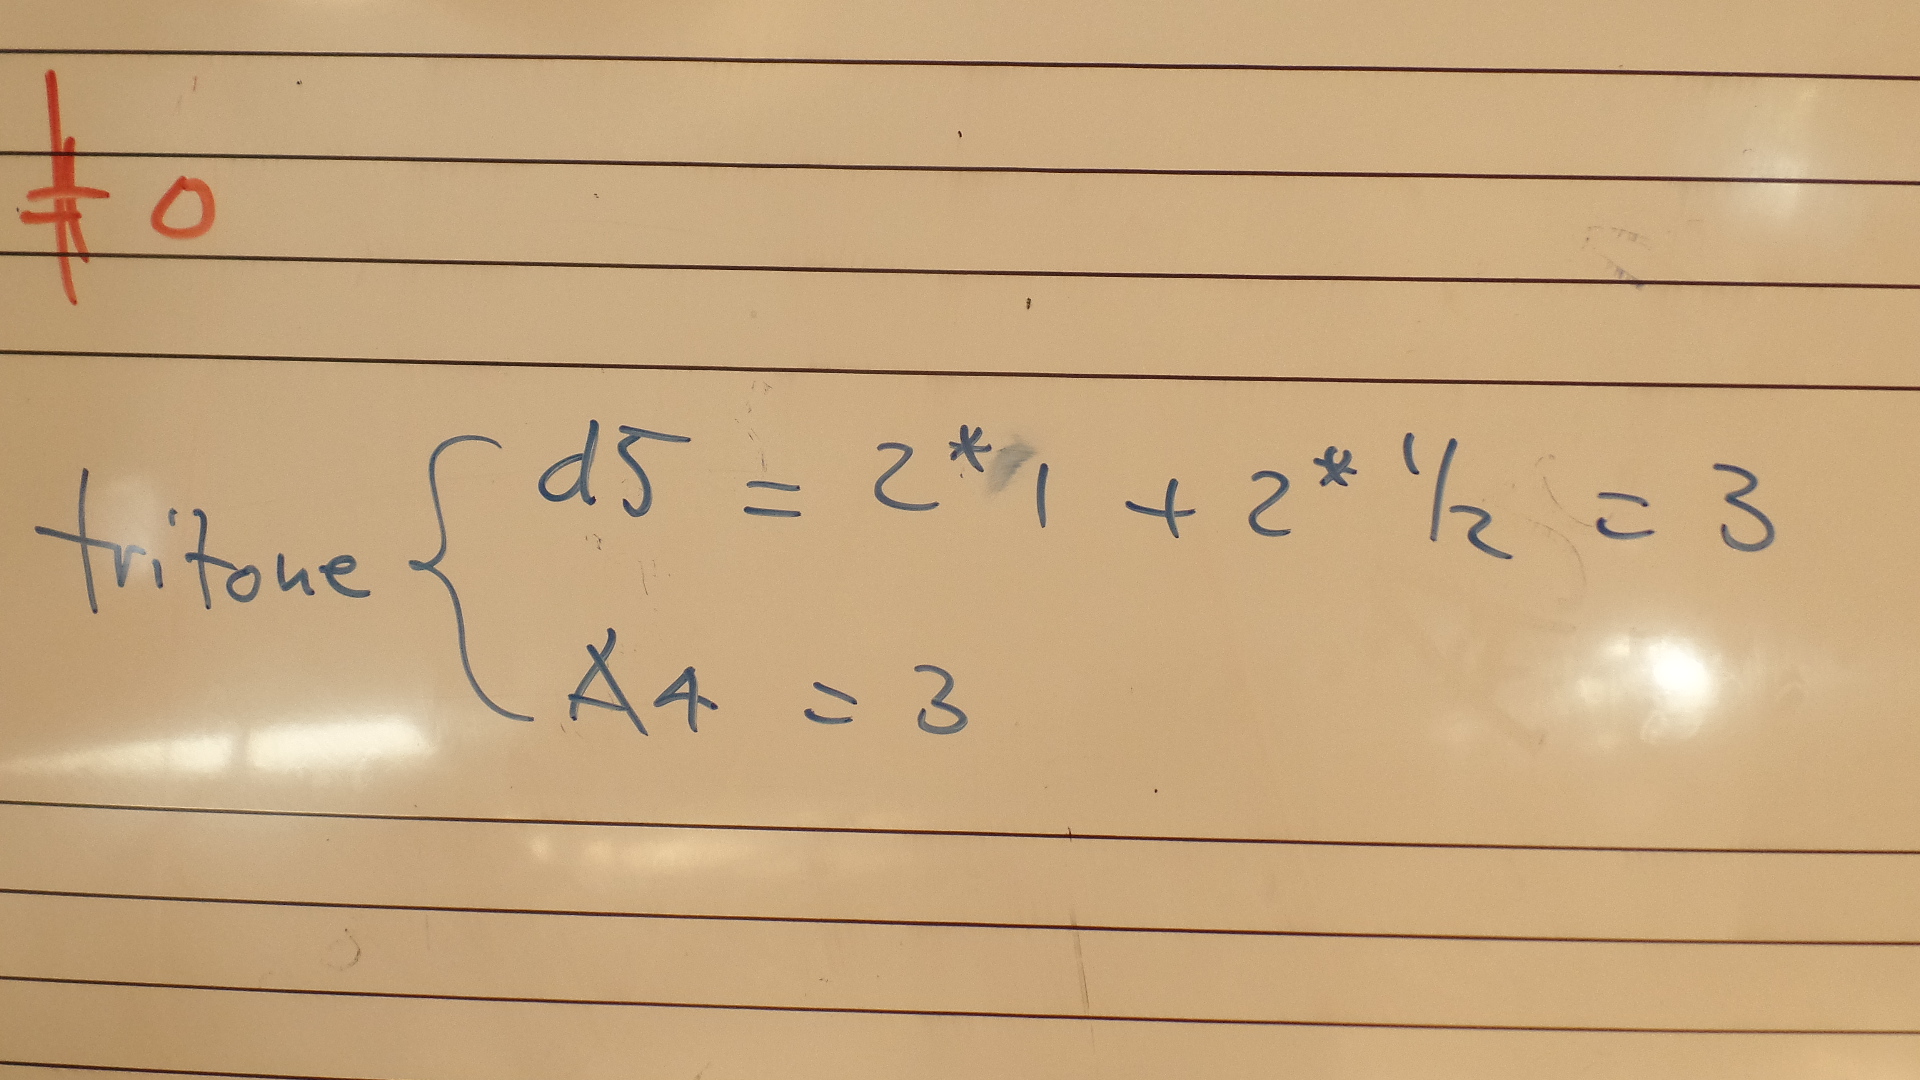 0
tritone { d5 = 2*1 + 2*1/2 = 3
A4 = 3